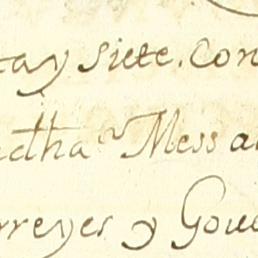 ta y siete. Con
ctha^n Mess a
rreyes y Gove